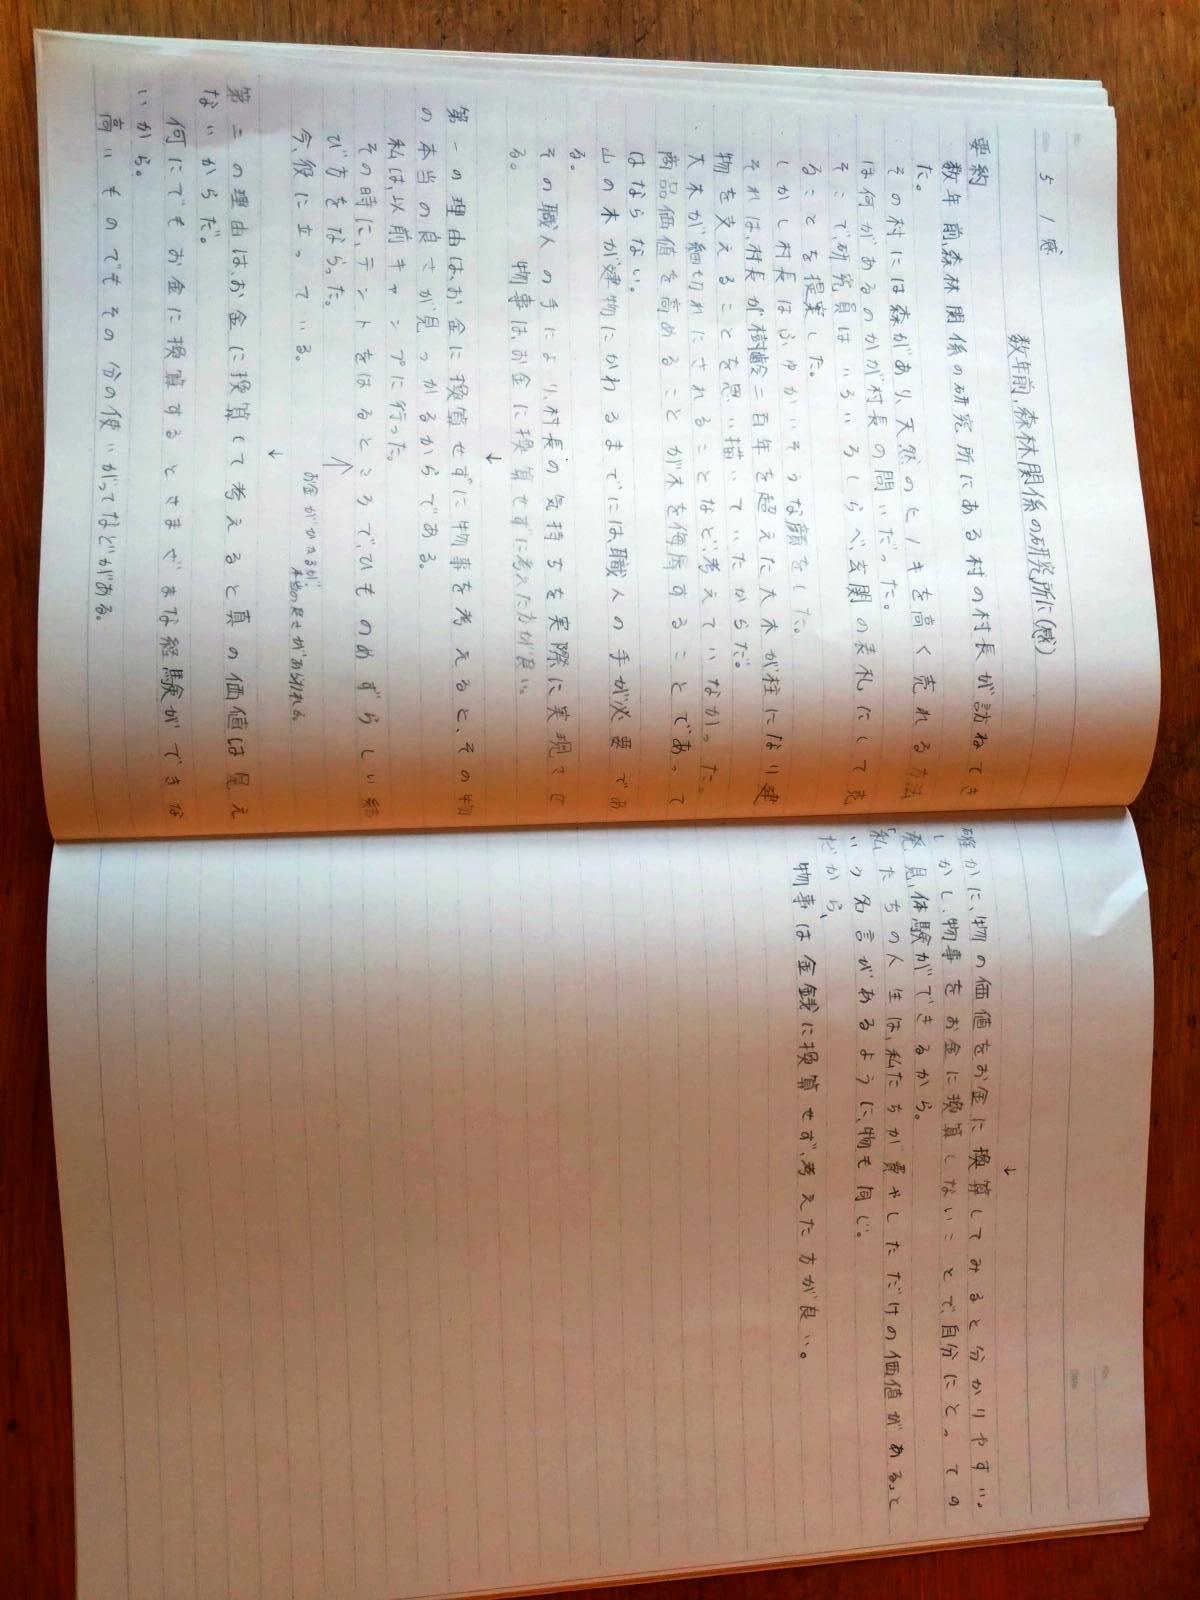 5／感
数年前、森林関係の研究所に(感)
要約
数年前、森林関係の研究所にある村の村長が訪ねてき
た。
その村には森があり、天然のヒノキを高く売れる方法
は何があるのかが村長の問いだった。
そこで、研究員はいろいろしらべ、玄関の表札にして売
ることを提案した。
しかし村長はふゆかいそうな顔をした。
それは、村長が樹齢二百年を超えた大木が柱になり建
物を支えることを思い描いていたからだ。
大木が細切れにされることなど、考えていなかった。
商品価値を高めることが木を侮辱することであって
はならない。
山の木が建物にかわるまでには、職人の手が必要であ
る。
その職人の手により、村長の気持ちを実際に実現させ
る。 物事は、お金に換算せずに考えた方が良い。
↓
第一の理由は、お金に換算せずに物事を考えると、その物
の本当の良さが見つかるからである。
私は、以前キャンプに行った。
その時に、テントをはるところで、ひものめずらしい結
び方をならった。
今、役に立っている。
↑
お金がかかるが、
本当の良さがあらわれる
↓
第二の理由は、お金に換算して考えると真の価値は見え
ないからだ。
何にでもお金に換算するとさまざまな経験ができな
いから。
高いものでもその分の使いがってなどがある。
↓
確かに、物の価値をお金に換算してみると分かりやすい。
しかし、物事をお金に換算しないことで、自分にとっての
発見、体験ができるから。
「私たちの人生は、私たちが費やしただけの価値がある」と
いう名言があるように、物も同じ。
だから、
物事は金銭に換算せず、考えた方が良い。